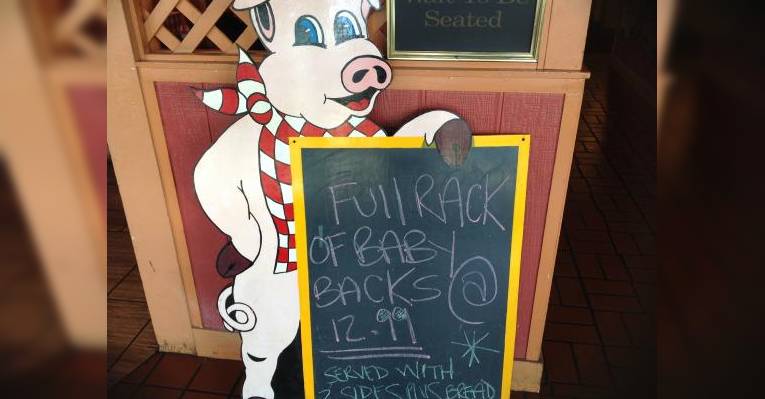 Wait To Be
Seated
FUll RACK
OF BABY
BACKS @
12.99
SERVED WITH
2 SIDES PLUS BREAD